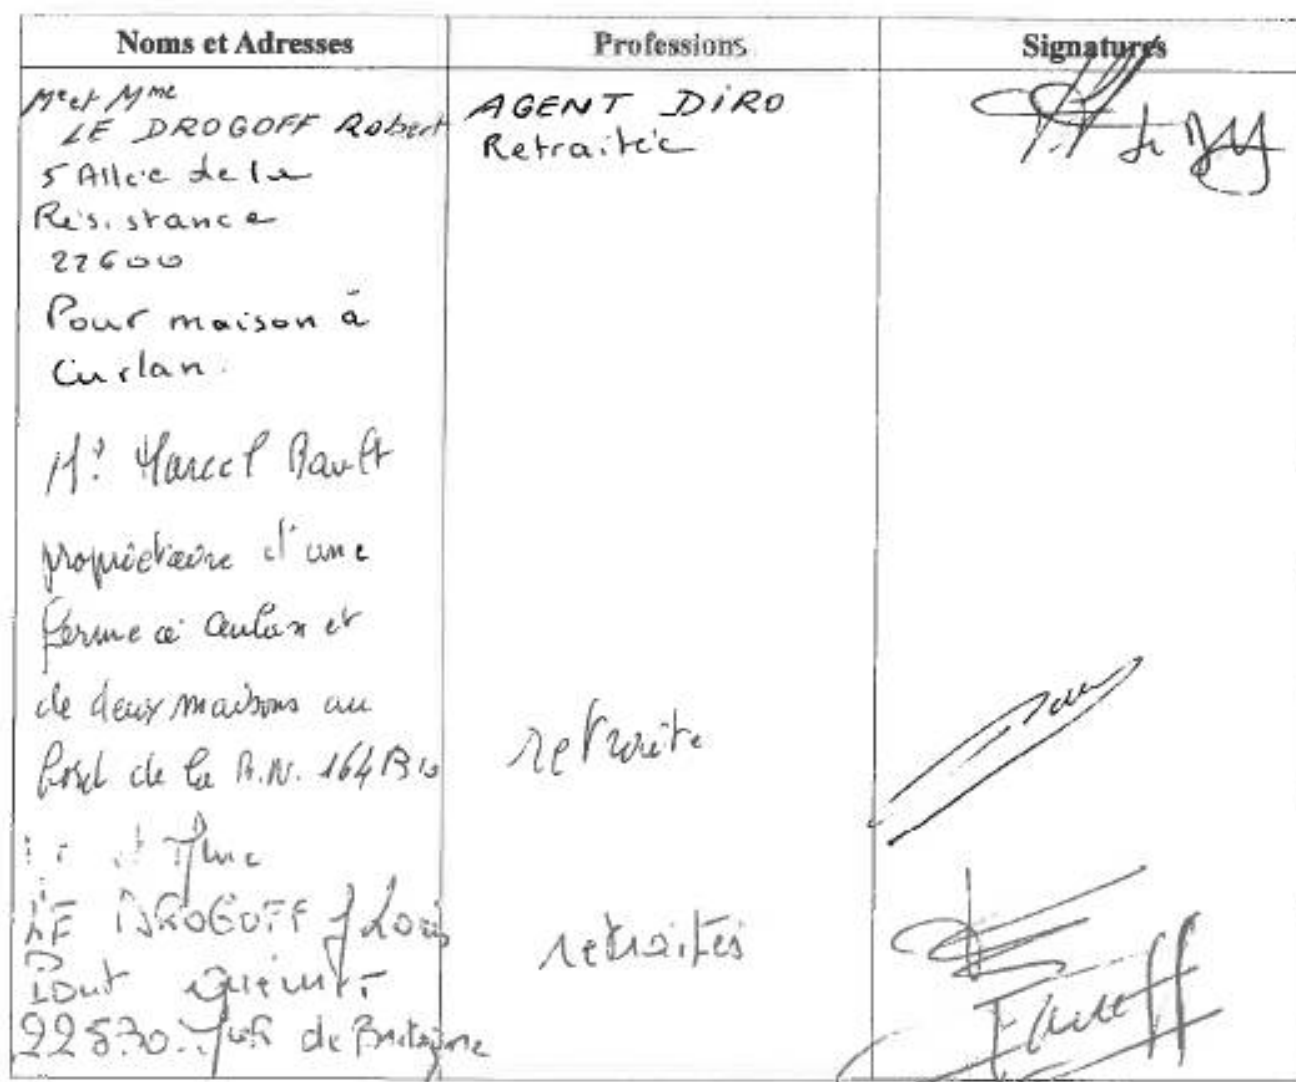 Noms et Adresses
Professions
Signatures
Mr et Mme
LE DROGOFF Robert
5 Allée de la
Résistance
22600
Pour maison à
Curlan.
AGENT DIRO
Retraitée
Mr Marcel Rault
propriétaire d'une
ferme à Curlan et
de deux maisons au
bord de la R.N. 164 Bis
retraite
et Mme
LE DROGOFF J Louis
Pont
22530 de Bretagne
retraités